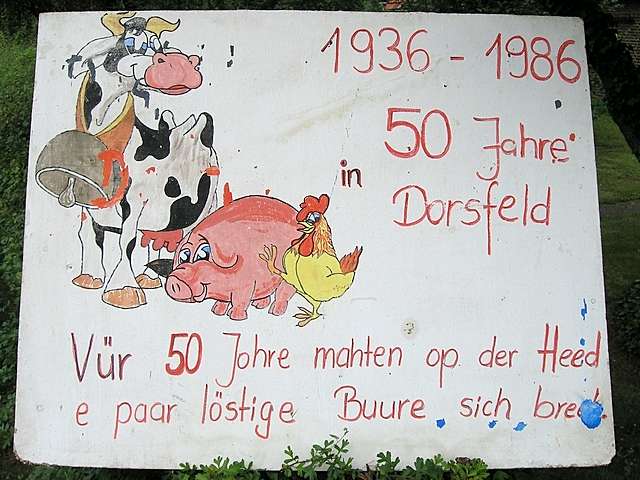 1936 - 1986
50 Jahre
in
Dorsfeld
D
Vür 50 Johre mahten op der Heed
e paar löstige Buure sich